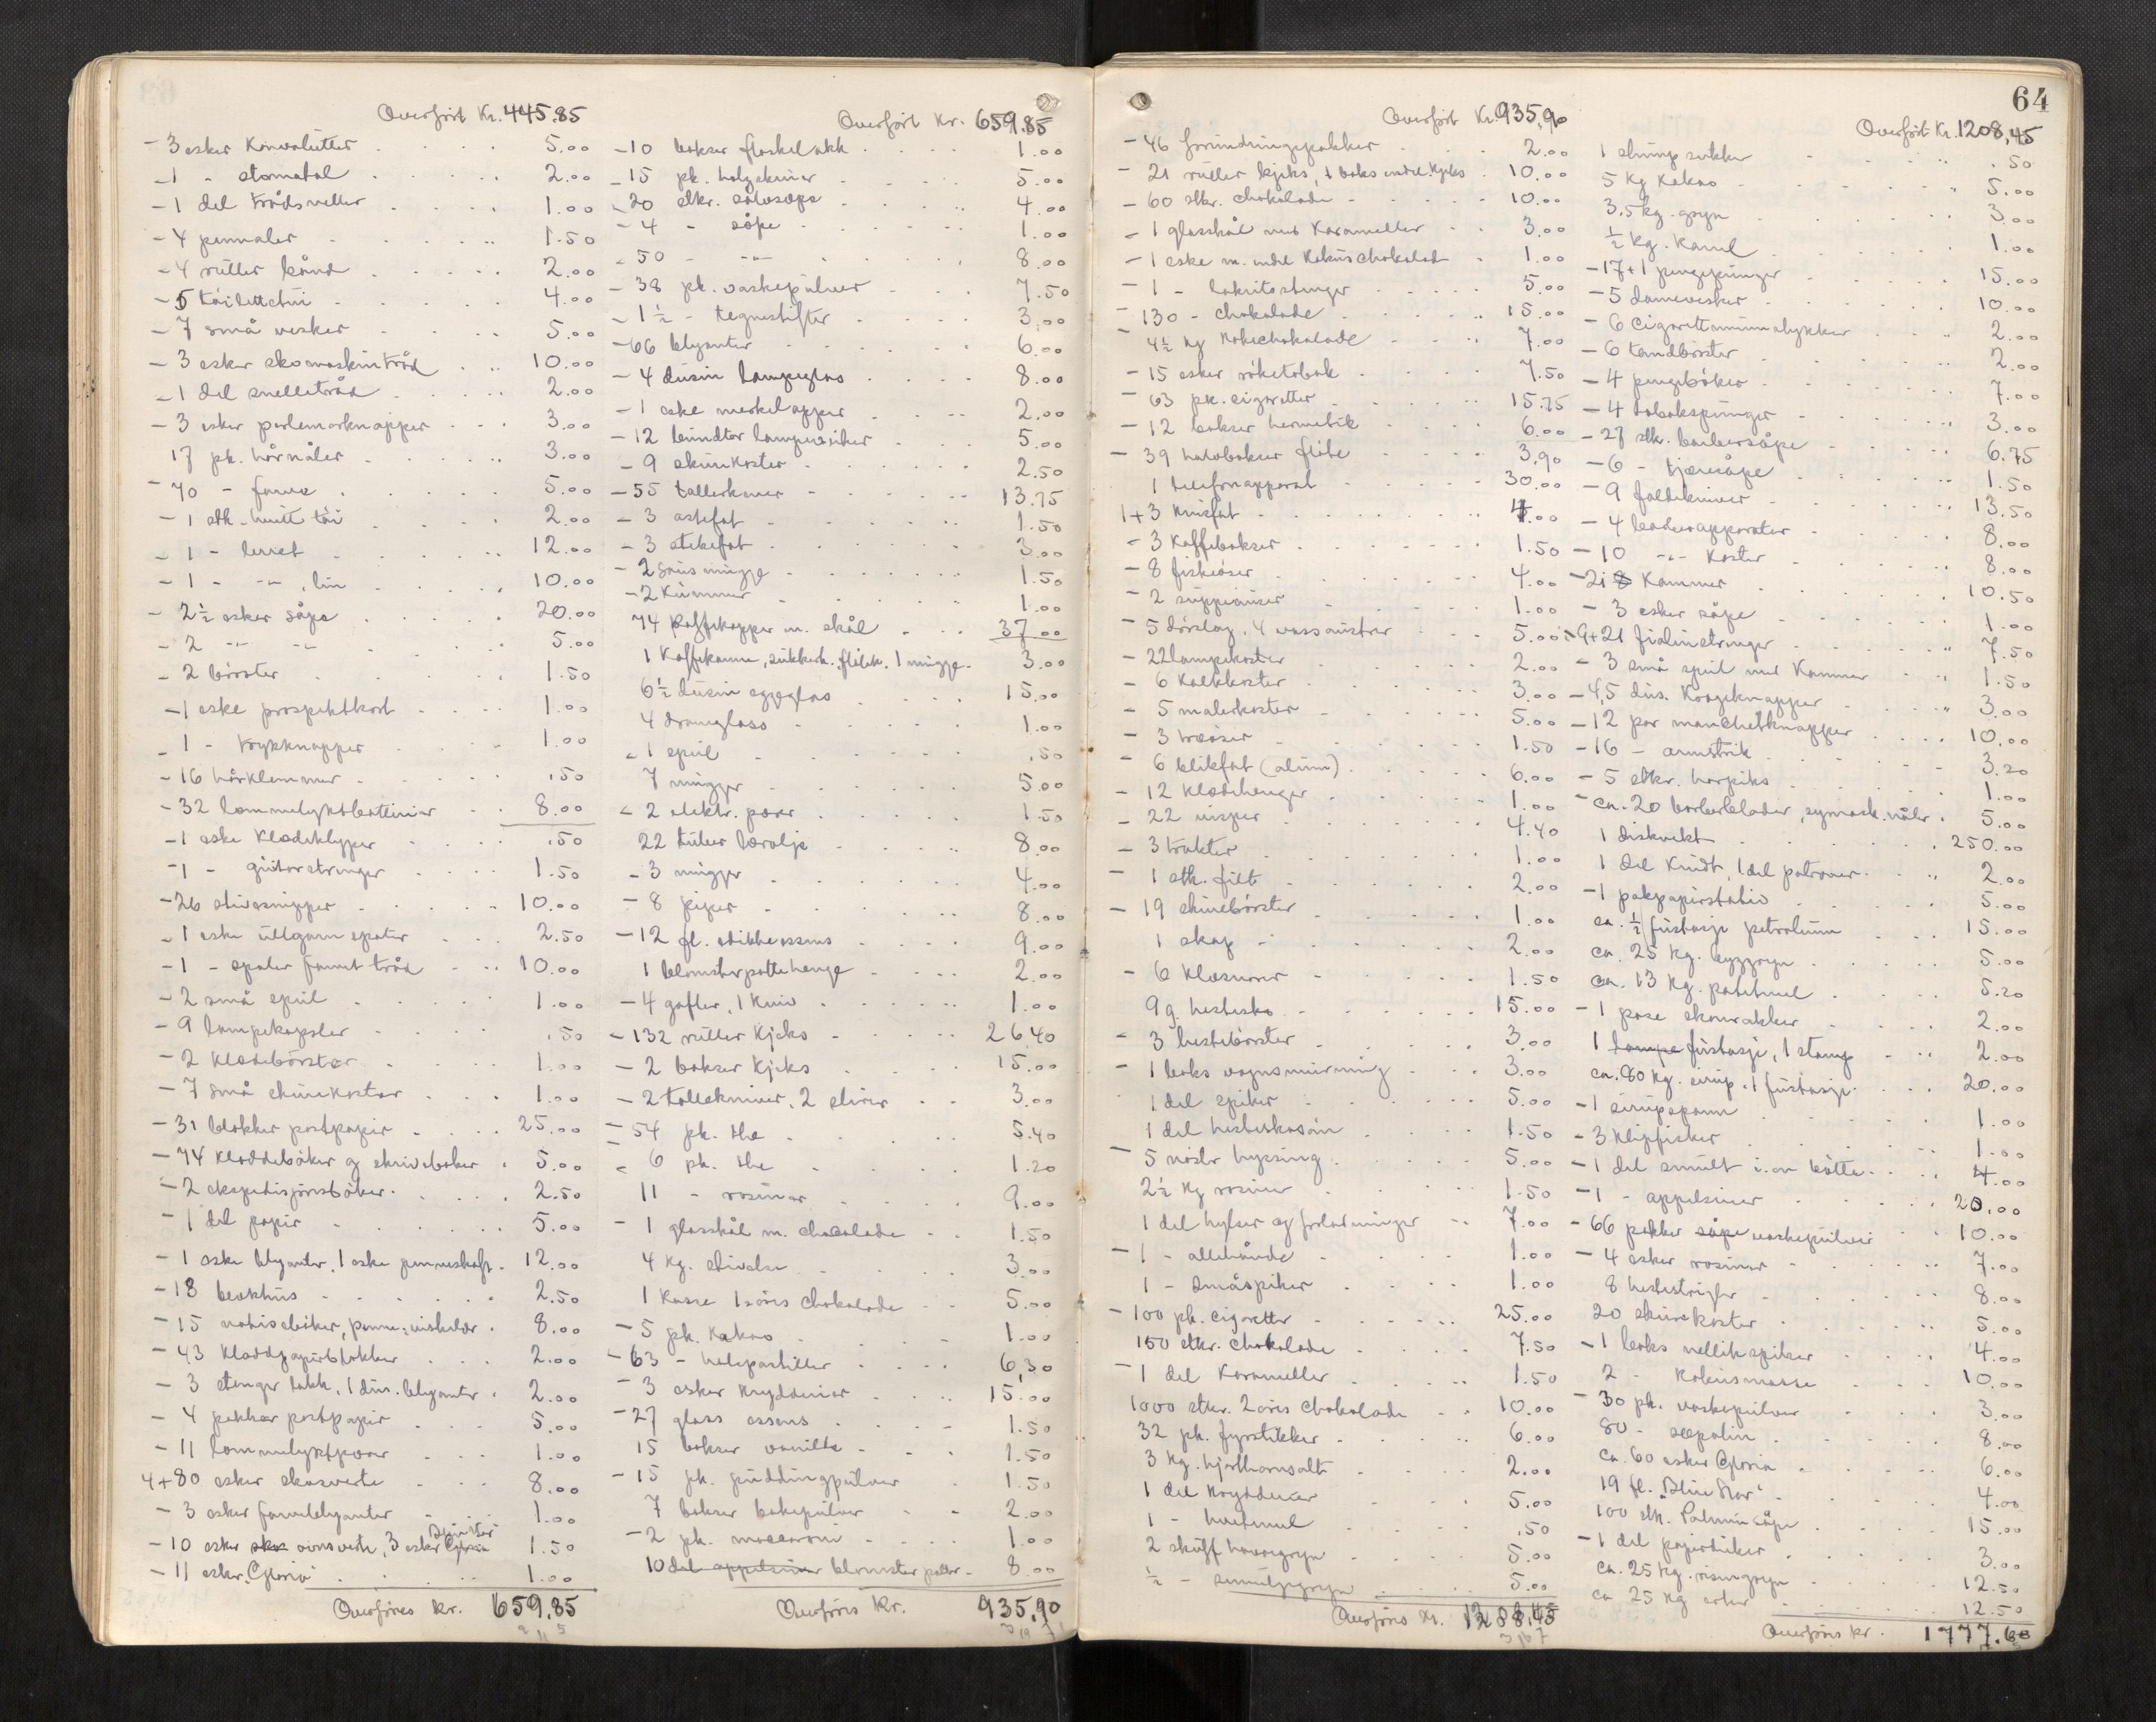 Overført Kr. 445.85
- 3 esker Konvolutter 5.00
- 1 - stomatol 2.00
- 1 del trådsneller 1.00
- 4 pennaler 1.50
- 4 ruller bånd 2.00
- 5 toilettetui 4.00
- 7 små vesker 5.00
- 3 esker skomaskintråd 10.00
- 1 del snelletråd 2.00
- 3 esker perlemorknapper 3.00
17 pk. hårnåler 3.00
- 70 - farve 5.00
- 1 stk. hvitt tøi 2.00
- 1 - lerret 12.00
- 1 - -"- , lin 10.00
- 2½ esker såpe 20.00
- 2 -"- -"- 5.00
- 2 børster 1.50
- 1 eske prospektkort 1.00
- 1 - trykknapper 1.00
- 16 hårklemmer .50
- 32 lommelyktbatterier 8.00
- 1 eske Klædeklyper .50
- 1 - guitarstrenger 1.50
- 26 stivesnipper 10.00
- 1 eske ullgarn spoler 2.50
- 1 - spoler farvet tråd 10.00
- 2 små speil 1.00
- 9 lampekapsler .50
- 2 Klædebørster 1.00
- 7 små skurekoster 1.00
- 31 blokker postpapir 25.00
- 74 Kladdebøker og skrivebøker 5.00
- 2 ekspedisjonsbøker 2.50
- 1 del papir 5.00
- 1 eske blyanter, 1 eske penneskaft 12.00
- 18 blekhus 2.50
- 15 notisbøker, penne, viskelær 8.00
- 43 Kladdpapirblokker 2.00
- 3 stenger lakk, 1 dus. blyanter 2.00
- 4 pakker postpapir 5.00
- 11 lommelyktpærer 1.00
4+80 esker skosverte 8.00
- 3 esker farveblyanter 1.00
- 10 esker ovnsverte, 3 esker Gloria 1.50
- 11 esker "Gloria" 1.00
Overføres Kr. 659.85
Overført Kr. 659.85
- 10 bokser flaskelakk 1.00
- 15 pk. 5.00
- 20 stkr. sølvsåpe 4.00
- 4 - såpe 1.00
- 50 - -"- 8.00
- 38 pk. vaskepulver 7.50
- 1½ - tegnestifter 3.00
- 66 blyanter 6.00
- 4 dusin lampeglas 8.00
- 1 eske merkelapper 2.00
- 12 bundter lampeveker 5.00
- 9 skurekoster 2.50
- 55 tallerkener 13.75
- 3 ostefat 1.50
- 3 stekefat 3.00
- 2 sausmugge 1.50
- 2 Kummer 1.00
74 Kaffekopper m. skål 37.00
1 Kaffekanne, sukkerk. fløtek. 1 mugge 3.00
6½ dusin eggeglas 15.00
4 dramglass 1.00
- 1 speil .50
7 mugger 5.00
- 2 elektr. pærer 1.50
22 tuber lærolje 8.00
- 3 mugger 4.00
- 8 piper 8.00
- 12 fl. eddikessens 9.00
1 blomsterpottehenge 2.00
- 4 gafler, 1 Kniv 1.00
- 132 ruller Kjeks 26.40
- 2 bokser Kjeks 15.00
- 2 tollekniver, 2 slirer 3.00
- 54 pk. the 5.40
- 6 pk. the 1.20
11 - rosiner 9.00
- 1 glasskål m. chocolade 1.50
4 kg. stivelse 3.00
1 Kasse 1 øres chokolade 5.00
- 5 pk. Kakao 1.00
- 63 - halspastiller 6,30
- 3 esker Krydderier 15.00
- 27 glass essens 1.50
15 bokser vanille 1.50
- 15 pk. puddingpulver 1.50
7 bokser bakepulver 2.00
- 2 pk. maccaroni 1.00
10 del appelsiner blomsterpotter 8.00
Overføres Kr. 935,90
Overført Kr. 935,90
- 46 forbindingspakker 2.00
- 21 ruller kjeks, 1 boks endel Kjeks 10.00
- 60 stkr. chokolade 10.00
- 1 glasskål med Karameller 3.00
- 1 eske m. endel Kokuschokolade 1.00
- 1 - lakritsstenger 5.00
- 130 - chokolade 15.00
- 4½ kg Kokechokolade 7.00
- 15 esker røketobak 7.50
- 63 pk. cigaretter 15.75
- 12 bokser hermetik 6.00
- 39 halvbokser fløte 3.90
1 telefonapparat 30.00
1+3 Knivfat 4.00
- 3 Kaffebokser 1.50
- 8 fiskeøser 4.00
- 2 suppeøuser 1.00
- 5 dørslag, 4 vassauster 5.00
- 22 lampekoster 2.00
- 6 Kalkkoster 3.00
- 5 malerkoster 5.00
- 3 træøser 1.50
- 6 blikfat (alum) 6.00
- 12 Klædehenger 1.00
- 22 visper 4.40
- 3 trakter 1.00
- 1 stk. filt 2.00
- 19 skurebørster 1.00
1 skap 2.00
- 6 Klæsnorer 1.50
9 g. hestesko 15.00
- 3 hestebørster 3.00
- 1 boks vognsmurning 3.00
1 del spiker 5.00
1 del hesteskosøm 1.50
- 5 nøster hyssing 5.00
2½ kg rosiner 1.50
1 del hylser og forladninger 7.00
- 1 - allehånde 1.00
1 - småspiker 1.00
- 100 pk. cigaretter 25.00
150 stkr. chokolade 7.50
- 1 del Karameller 1.50
1000 stkr. 2 øres chokolade 10.00
32 pk. fyrstikker 6.00
3 kg. hjorthornsalt 2.00
1 del Krydderier 5.00
1 - hvetemel .50
2 skuff havregryn 5.00
½ - semulegryn 5.00
Overføres Kr. 1208,45
64
Overført Kr. 1208,45
1 slump sukker .50
5 Kg Kakao 5.00
3,5 kg. gryn 3.00
½ kg. Kanel 1.00
- 17+1 pengepunger 15.00
- 5 damevesker 10.00
- 6 cigarettmunnstykker 2.00
- 6 tandbørster 2.00
- 4 pengebøker 7.00
- 4 tobakspunger 3.00
- 27 stk. barbersåpe 6.75
- 6 - tjæresåpe 1.50
- 9 foldekniver 13.50
- 4 barberapparater 8.00
- 10 -"- Koster 8.00
- 21 Kammer 10.50
- 3 esker såpe 1.00
- 9+21 fiolinstrenger 7.50
- 3 små speil med Kammer 1.50
- 4,5 dus. Krageknapper 3.00
- 12 par manchetknapper 10.00
- 16 - armstrik 3.20
- 5 stkr. harpiks 1.00
- ca. 20 barberblader, symask.nåler 5.00
1 diskvekt 250.00
1 del Krudt, 1 del patroner 2.00
- 1 pakpapirstativ 5.00
ca. ½ fustasje petroleum 15.00
ca. 25 Kg. bygggryn 5.00
ca. 13 Kg. potetmel 5.20
- 1 pose 2.00
1 lampe fustasje, 1 stamp 2.00
ca. 80 Kg. sirup, 1 fustasje 20.00
- 1 sirupspann 1.00
- 3 Klipfisker 1.00
- 1 del smult i en bøtte 4.00
- 1 - appelsiner 20.00
- 66 pakker såpe vaskepulver 10.00
- 4 esker rosiner 7.00
8 hestestrigler 8.00
20 skurekoster 5.00
- 1 boks nellikspiker 4.00
2 - Kokusmasse 10.00
- 30 pk. vaskepulver 3.00
80 - sepolin 8.00
ca. 60 esker Gloria 6.00
19 fl. "Blue Star" 4.00
100 stk. Palmin såpe 15.00
- 1 del papirduker 3.00
ca. 25 Kg. risengryn 12.50
ca 25 Kg erter 12.50
Overføres kr. 1777.60